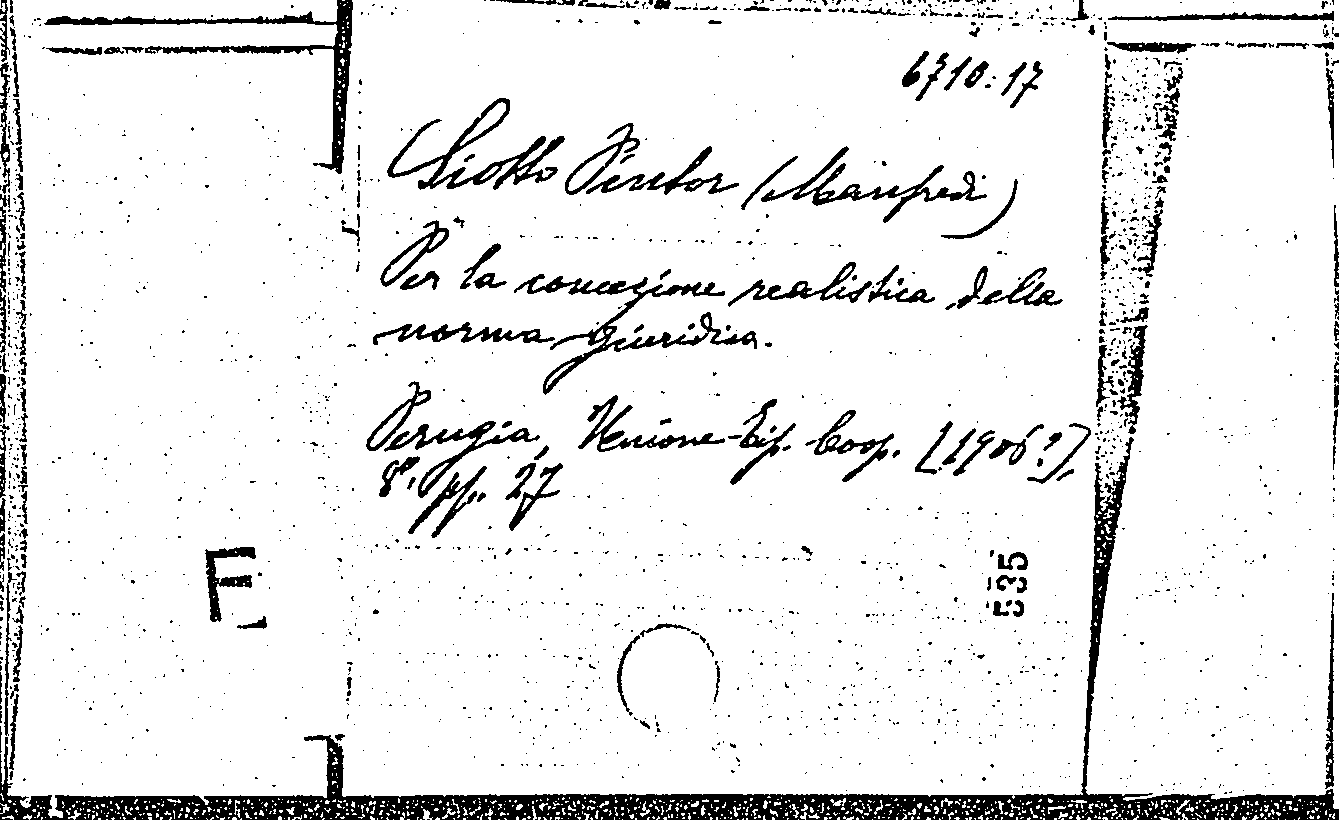 6710.17
Siotto Pintor (Manfredi)
Per la concezione realistica della
norma giuridica.
Perugia, Unione Tip. Coop. [1906?],
8°. pp. 27
535
E